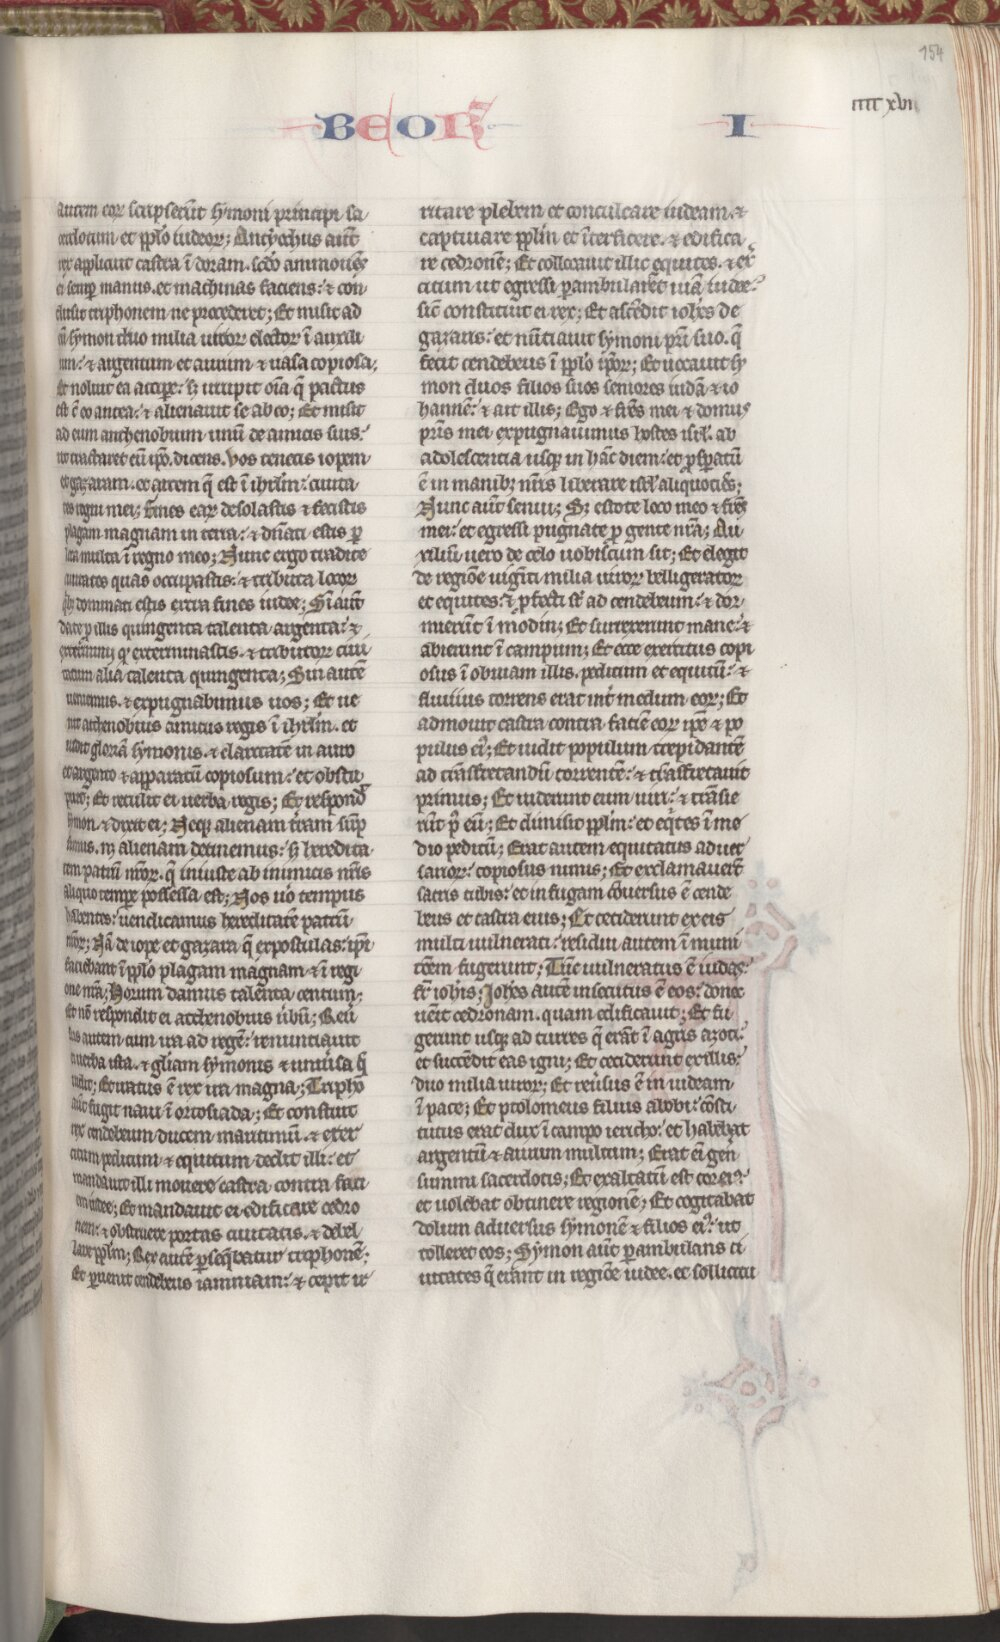 154
iiii xvii
BEOR I
autem eor scripserūt symoni principi sa
cerdotum et pplo iudeor; Antyochus aūt
rex applicuit castra ī doram scđo ammouēs
ei semp manus et machinas faciens & con
clusit triphonem ne procederet; Et misit ad
eū symon duo milia uiror elector ī auxili
um & argentum et aurum & uasa copiosa;
Et noluit ea accipe s; irrupit oīa q̄ pactus
est ē eo antea & alienauit se ab eo; Et misit
ad eum athenobium unū de amicis suis
ut tractaret cū ipo dicens Vos tenetis iopem
et gazaram et arcem q̄ est ī ihrlm ciuita
tes regni mei; Fines ear desolastis & fecistis
plagam magnam in terra & dn̄ati estis p
loca multa ī regno meo; Nunc ergo tradite
ciuitates quas occupastis & tributa locor
ī qb; dominati estis extra fines iudee; Sī aūt
date p illis quingenta talenta argenti &
exterminii qđ exterminastis & tributor ciui
tatum alia talenta quingenta; Sin autē
ueniemus & expugnabimus uos; Et ue
nit athenobius amicus regis ī ihrlm et
uidit gloriā symonis & claritatē in auro
et argento & apparatū copiosum et obstu
puit; Et retulit ei uerba regis; Et respond
symon & dixit ei; Neq; alienam tram sūp
simus nq; alienam detinemus s; heredita
tem patrū nror q̄ iniuste ab inimicis nris
aliquo tempe possessa est; Nos uo tempus
habentes uendicamus hereditatē patrū
nror; Nā de iope et gazara q̄ expostulas ipi
faciebant ī pplo plagam magnam & ī regi
one nra; Horum damus talenta centum;
Et nō respondit ei athenobius ūbū; Reū
sus autem cum ira ad regē renuntiauit
ei uerba ista & gliam symonis & uniūsa q̄
uidit; Et iratus ē rex ira magna; Tripho
aūt fugit naui ī ortosiada; Et constuit
rex cendebeum ducem maritimū & exer
citum peditum & equitum dedit illi et
mandauit illi mouere castra contra faci
em iudee; Et mandauit ei edificare cedro
nem & obstruere portas ciuitatis & debel
lare pplm; Rex autē pseqbatur triphonē;
Et peruenit cendebeus iamniam & cepit ir
ritare plebem et conculcare iudeam &
captiuare pplm et īterficere & edifica
re cedronē; Et collocauit illic equites & exer
citum ut egressi pambularent uiā iudee
sic constituit ei rex; Et ascedit iohes de
gazaris et nūtiauit symoni pri suo q̄
fecit cendebeus ī pplo ipor; Et uocauit sy
mon duos filios suos seniores iudā & io
hannē & ait illis; Ego & fres mei & domus
pris mei expugnauimus hostes isrl ab
adolescentia usq; in hāc diem et pspatū
ē in manib; nris liberare isrl aliquotiēs;
Nunc aūt senui; S; estote loco meo & fres
mei et egressi pugnate p gente nra; Au
xiliū uero de celo uobiscum sit; Et elegit
de regiōe uigīti milia uiror belligerator
et equites & pfecti st ad cendebeum & dor
mierūt ī modin; Et surrexerunt mane &
abierunt ī campum; Et ecce exercitus copi
osus ī obuiam illis peditum et equitū &
fluuius torrens erat int medium eor; Et
admouit castra contra faciē eor ipe & po
pulus ei; Et uidit populum trepidantē
ad trāsfretandū torrentē & trāsfretauit
primus; Et uiderunt eum uiri & trāsie
rūt p eū; Et diuisit pplm et eqtes ī me
dio peditū; Erat autem equitatus aduer
sarior copiosus nimis; Et exclamauerūt
sacris tubis et in fugam ōuersus ē cende
beus et castra eius; Et ceciderunt ex eis
multi uulnerati residui autem ī muni
tōem fugerunt; Tūc uulneratus ē iudas
fr iohis; Iohes autē insecutus ē eos donec
uēit cedronam quam edificauit; Et fu
gerunt usq; ad turres q̄ erāt ī agris azoti
et succēdit eas igni; Et ceciderunt ex illis
duo milia uiror; Et reūsus ē in iudeam
ī pace; Et ptolomeus filius abobi cōsti
tutus erat dux ī campo iericho et habebat
argentū & aurum multum; Erat eī gen
summi sacerdotis; Et exaltatū est cor ei
et uolebat obtinere regionē; Et cogitabat
dolum aduersus symonē & filios ei ut
tolleret eos; Symon aūt pambulans ci
uitates q̄ erant in regiōe iudee et sollicitu